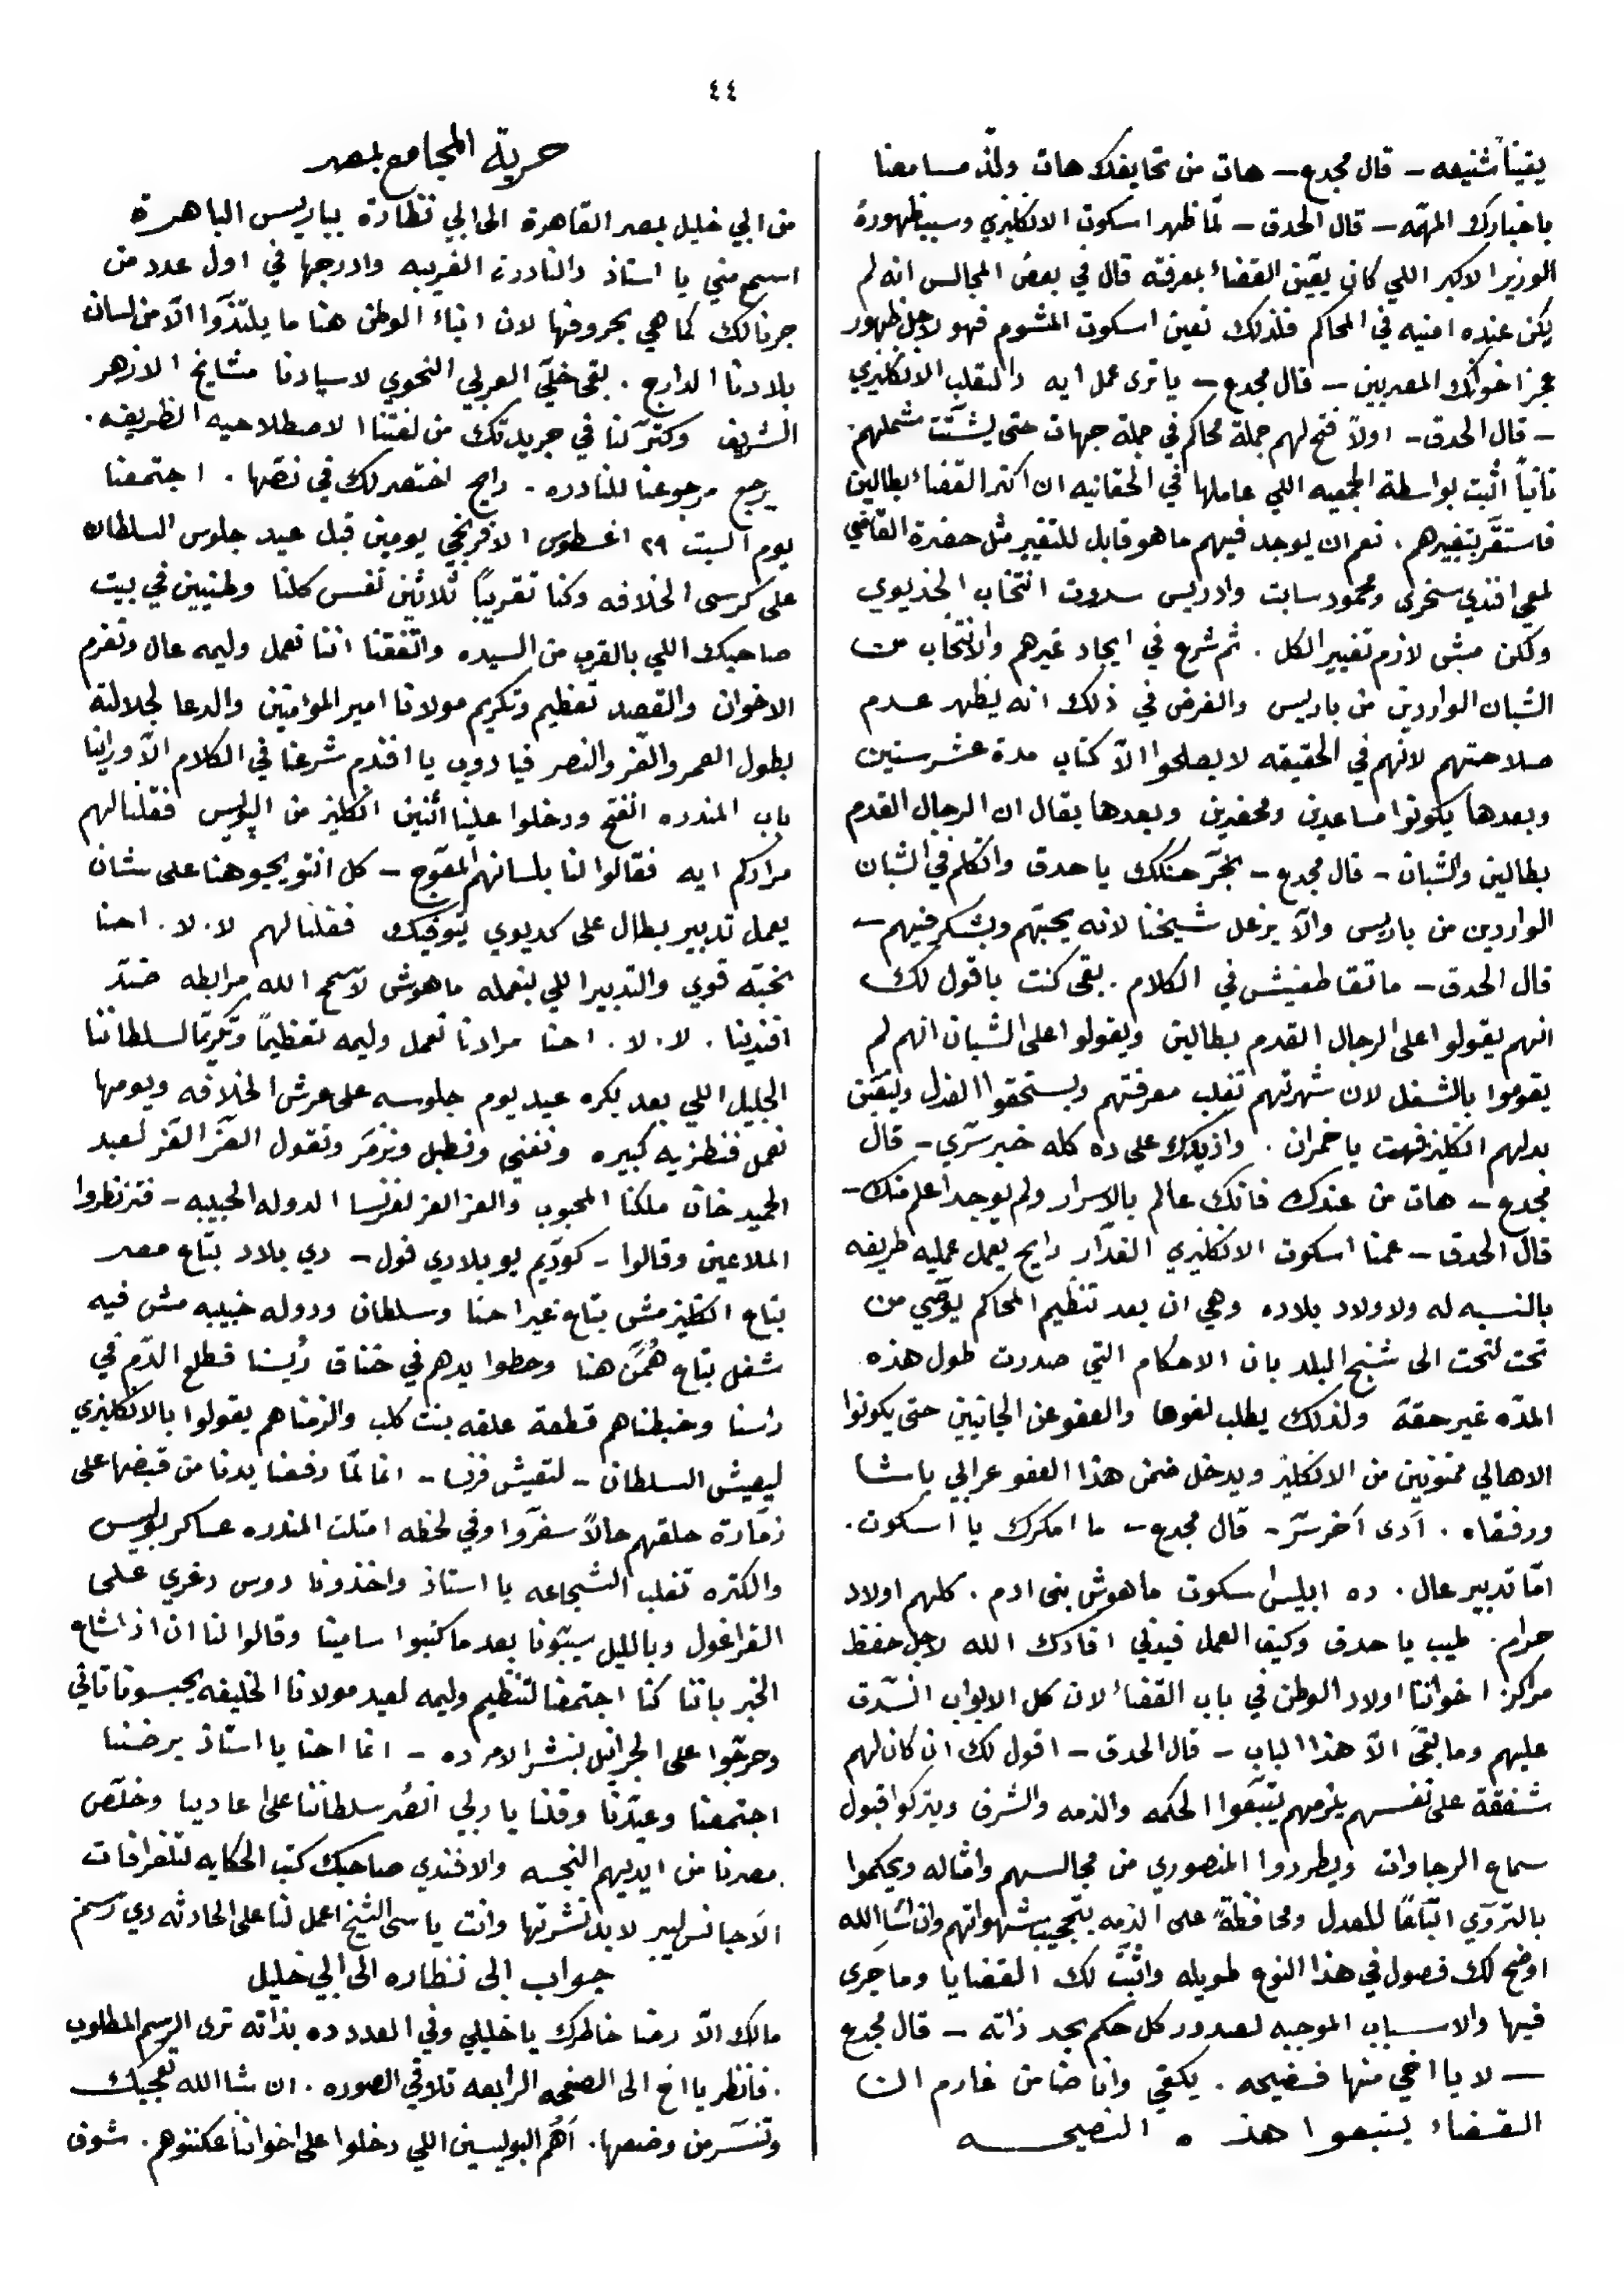 ٤٤
يقيناً شنيعه – قال مجدع – هات من تحايفك هات ولذّ مسامعنا
باخبارك المهمّه – قال الحدق – لمّا ظهر اسكوت الانكليزي وسبب ظهوره
الوزير الاكبر اللي كان يعيّن القضاء بمعرفته قال في بعض المجالس انه لم
يكن عنده امنيه في المحاكم فلذلك تعين اسكوت المشوم فهو لاجل ظهور
عجز اخوانك المصريين – قال مجدع – يا ترى عمل ايه دا الثعلب الانكليزي
– قال الحدق – اولاً فتح لهم جملة محاكم في جملة جهات حتى يشتّت شملهم.
ثانياً اثبت بواسطة الجمعيه اللي عاملها في الحقانيه ان اكثر القضاء بطالين
فاستقرّ بتغييرهم. نعم ان يوجد فيهم ما هو قابل للتغيير مثل حضرة القاضي
لمعي افندي سخرى ومحمود سابت وادريس سدوت انتخاب الخديوي
ولكن مش لازم تغيير الكل. ثم شرع في ايجاد غيرهم والانتخاب من
الشبان الواردين من باريس والغرض في ذلك انه يظهر عدم
صلاحتهم لانهم في الحقيقه لا يصلحوا الاّ كتاب مدة عشر سنين
وبعدها يكونوا مساعدين ومحضرين وبعدها يقال ان الرجال القدم
بطالين والشبان – قال مجدع – بخّر حنكك يا حدق واتكلم في الشبان
الواردين من باريس والاّ يزعل شيخنا لانه يحبّهم ويشكر فيهم –
قال الحدق – ما تقاطعنيش في الكلام. بقى كنت باقول لك
انهم يقولوا على الرجال القدم بطالين ويقولوا على الشبان انهم لم
يقوموا بالشغل لان شهرتهم تغلب معرفتهم ويستحقوا العزل ويتعين
بدلهم انكليز فهمت يا خمران. وازيدك على ده كله خبر سرّي – قال
مجدع – هات من عندك فانك عالم بالاسرار ولم يوجد اعلم منك –
قال الحدق – عمنا اسكوت الانكليزي الغدّار رايح يعمل عمليه ظريفه
بالنسبه له ولاولاد بلاده وهي ان بعد تنظيم المحاكم يوصّي من
تحت لتحت الى شنبج البلد بان الاحكام التي صدرت طول هذه
المدّه غير حقة ولذلك يطلب لغوها والعفو عن الجانيين حتى يكونوا
الاهالي ممنونين من الانكليز ويدخل ضمن هذا العفو عرابي باشا
ورفقاه. آدى آخر سرّ – قال مجدع – ما امكرك يا اسكوت.
امّا تدبير عال. ده ابليس اسكوت ماهوش بنى ادم. كلهم اولاد
حرام. طيب يا حدق وكيف العمل فيدني افادك الله لاجل حفظ
مراكز اخواننا اولاد الوطن في باب القضاء لان كل الابواب انسّدت
عليهم وما بقى الاّ هذا الباب – قال الحدق – اقول لك ان كان لهم
شفقة على نفسهم يلزمهم يتبّعوا الحكمه والذمه والشرف ويتركوا قبول
سماع الرجاوات ويطردوا المنصوري من مجالسهم وامثاله ويحكموا
بالتروّي اتّباعاً للعدل ومحافظةً على الذمه بتجنيب شهواتهم وان شاالله
اوضح لك فصول في هذا النوع طويله واثبّت لك القضايا وما جرى
فيها والاسباب الموجبه لصدور كل حكم بحد ذاته – قال مجدع
– لا يا اخي منها فضيحه. يكفي وانا ضامن غارم ان
القضاء يتبعوا هذه النصيحه
حرية المجامع بمصر
من ابي خليل بمصر القاهرة الى ابي نظارة بباريس الباهرة
اسمع مني يا استاذ دالنادرة الغريبه وادرجها في اول عدد من
جرنالك كما هي بحروفها لان ابناء الوطن هنا ما يلتذّوا الاّ من لسان
بلادنا الدارج. بقى خلّي العربي النحوي لاسيادنا مشايخ الازهر
الشريف وكتّر لنا في جريدتك من لغتنا الاصطلاحيه الظريفه.
يرجع مرجوعنا للنادره – رايح اختصر لك في نصّها. اجتمعنا
يوم السبت ٢٩ اغسطوس الافرنجي يومين قبل عيد جلوس السلطان
على كرسى الخلافه وكنا تقريباً ثلاثين نفس كلنا وطنيين في بيت
صاحبك اللي بالقرب من السيده واتّفقنا اننا نعمل وليمه عال ونعزم
الاخوان والقصد تعظيم وتكريم مولانا امير المؤمنين والدعا لجلالته
بطول العمر والعّز والنصر فيا دوب يا افندم شرعنا في الكلام الاّ وراينا
باب المندره انفتح ودخلوا علينا اثنين انكليز من البوليس فقلنا لهم
مرادكم ايه فقالوا لنا بلسانهم المعّوج – كل انتو يجيو هنا على شان
يعمل تدبير بطال على كديوي يتوفيك فقلنا لهم لا. لا. احنا
نحبّه قوي والتدبير اللي بنعمله ماهوش لاسمح الله مرابطه ضدّ
افندينا. لا. لا. احنا مرادنا نعمل وليمه تعظيماً وتكريمًا لسلطاننا
الجليل اللي بعد بكره عيد يوم جلوسه على عرش الخلافه ويومها
نعمل فنطزيه كبيره ونغني ونطبل ونزمّر ونقول العّز العّز لعبد
الحميد خان ملكنا المحبوب والعز العز لفرنسا الدوله الحبيبه – فتزنطروا
الملاعين وقالوا – كوديم يو بلادي فول – دي بلاد بتاع مصر
بتاع انكليز مش بتاع غير احنا وسلطان ودوله خبيبه مش فيه
شغل بتاع هُمّن هنا وحطوا يدهم في خناق ريّسنا فطلع الدّم في
راسنا وخبطناهم قطعة علقه بنت كلب والزمناهم يقولوا بالانكليزي
ليعيش السلطان – لتعيش فرنسا – انما لمّا رفعنا يدنا من قبضها على
زمّارة حلقهم حالاً سفرّوا وفي لحظه امتلت المندره عساكر بوليس
والكتره تغلب الشجاعه يا استاذ واخذونا دوس دغري على
القراغول وبالليل سيّبونا بعد ما كتبوا سامينا وقالوا لنا ان اذا شاع
الخبر باننا كنا اجتمعنا لتنظيم وليمه لعيد مولانا الخليفه يحبسونا تاني
وحرّجوا على الجرانيل بنشر الامر ده – انما احنا يا استاذ برضنا
اجتمعنا وعيّدنا وقلنا يا ربي انصُر سلطاننا على اعادينا وخلّص
مصرنا من ايديهم النجسه والافندي صاحبك كتب الحكايه لتلغرافات
الآجانس ليبر لابد نشرتها وانت ياسى الشيخ اعمل لنا على الحادثه دي رسم
جواب ابى نظاره الى ابي خليل
مالك الاّ رضا خاطرك يا خليلي وفي العدد ده بذاته ترى الرسم المطلوب
. فانظر يا اخ الى الصفحه الرابعه تلاقي الصوره. ان شاالله تعجبك
وتنسّر من وضعها. آهُم البوليسين اللي دخلوا على اخواننا عكننوهم. شوف